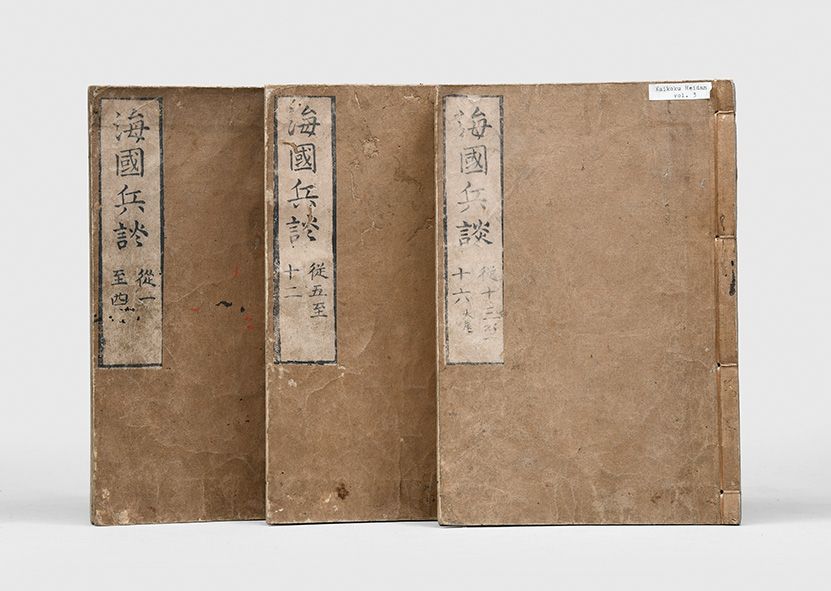 海國兵談
從一
至四
海國兵談
從五至
十二
海國兵談
從十三至
十六大尾
Kaikoku Heidan
vol. 3